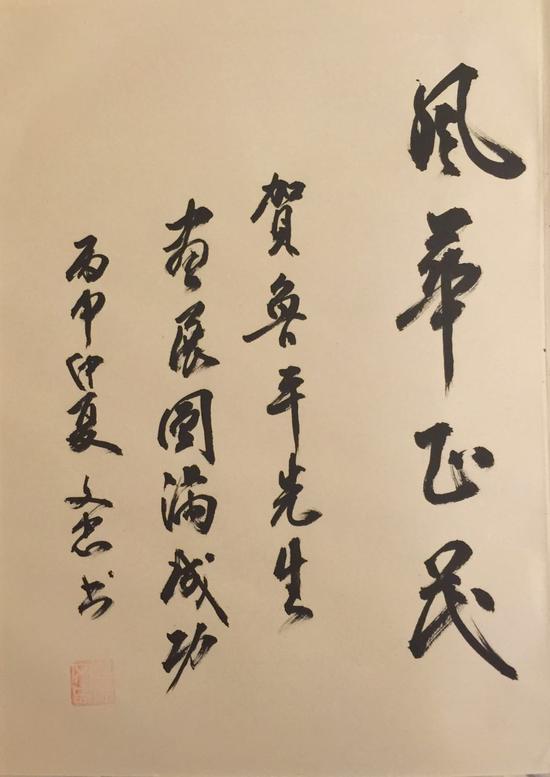 風華正茂
賀魯平先生
畫展圓滿成功
丙申仲夏 文忠书